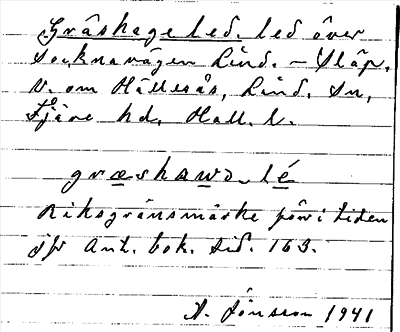 Gråshageled. led över
Socknavägen Lind. – Släp.
V. om Hällesås, Lind. Sn,
Fjäre hd. Hall. l.
græshawə-lé
Riksgränsmärke förr i tiden
jfr Ant. bok. sid. 163.
A. Jönsson 1941